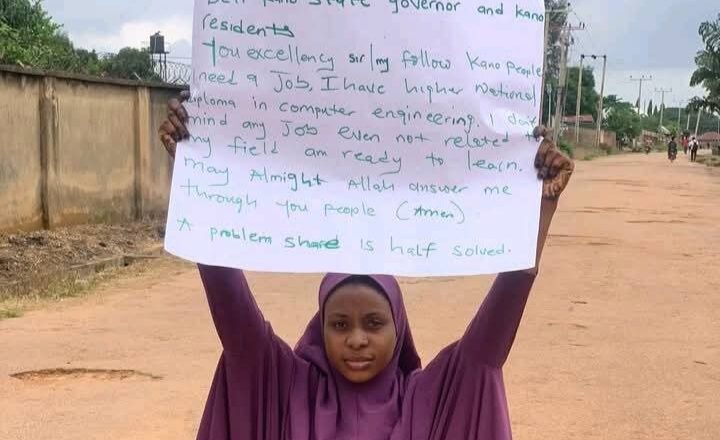 Kano State governor and Kano
residents
You excellency sir/my follow Kano People
need a Job, I have higher National
iploma in computer engineering. I don
mind any Job even not related t
my field am ready to learn.
may Almight Allah answer me
through you people (Amen)
A problem share is half solved.